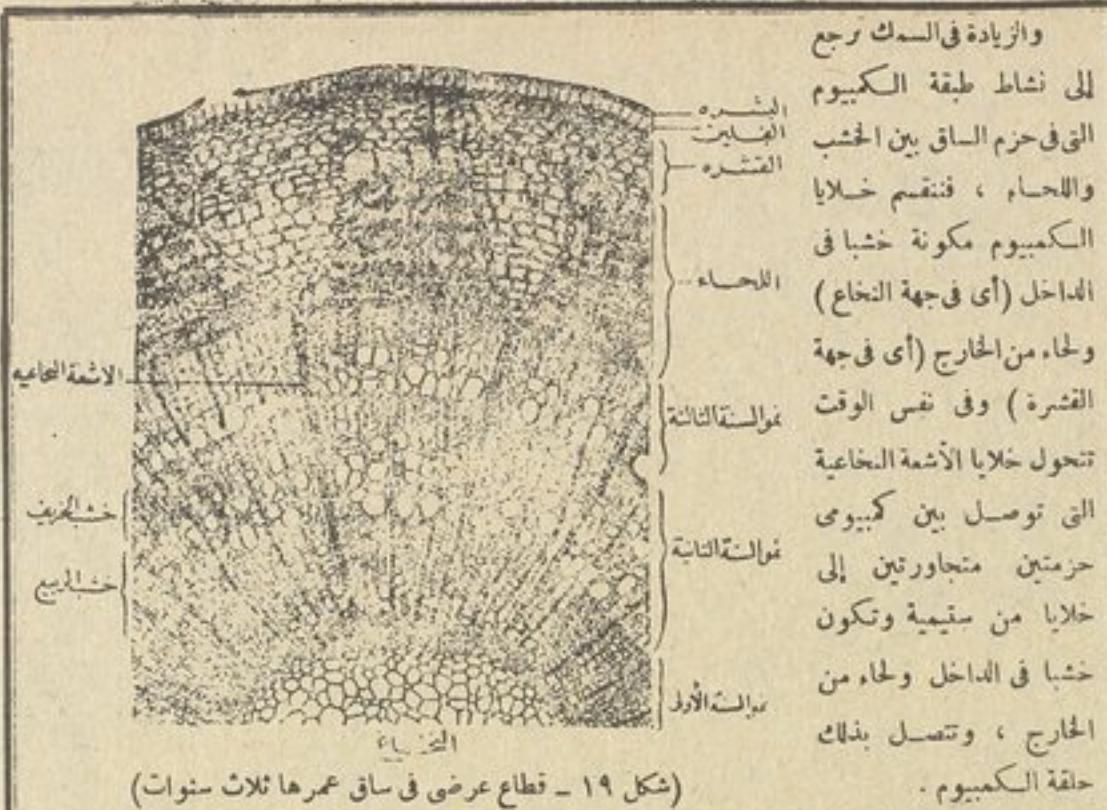 والزيادة فى السمك ترجع
إلى نشاط طبقة الكمبيوم
التى فى حزم الساق بين الخشب
واللحاء ، فتنقسم خلايا
الكمبيوم مكونة خشبا فى
الداخل (أى فى جهة النخاع)
ولحاء من الخارج (أى فى جهة
القشرة) وفى نفس الوقت
تتحول خلايا الأشعة النخاعية
التى توصل بين كمبيومى
حزمتين متجاورتين إلى
خلايا مرستيمية وتكون
خشبا فى الداخل ولحاء من
الخارج ، وتتصل بذلك
حلقة الكمبيوم .
البشره
الفلين
القشره
اللحاء
نمو السنة الثالثة
نمو السنة الثانية
نمو السنة الأولى
الاشعة النخاعيه
خشب الخريف
خشب الربيع
النخاع
(شكل ١٩ ـ قطاع عرضى فى ساق عمرها ثلاث سنوات)